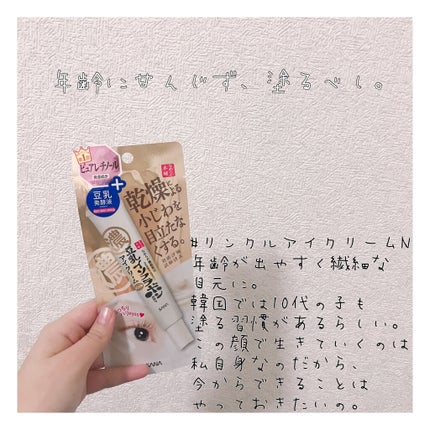 年齢に甘んじず、塗るべし。
ピュアレチノール
豆乳
発酵液
乾燥による
小じわを
目立たな
くする。
濃
豆乳イソフラボン
SANA
#リンクルアイクリームN
年齢が出やすく繊細な
目元に。
韓国では10代の子も
塗る習慣があるらしい。
この顔で生きていくのは
私自身なのだから、
今からできることは
やっておきたいの。